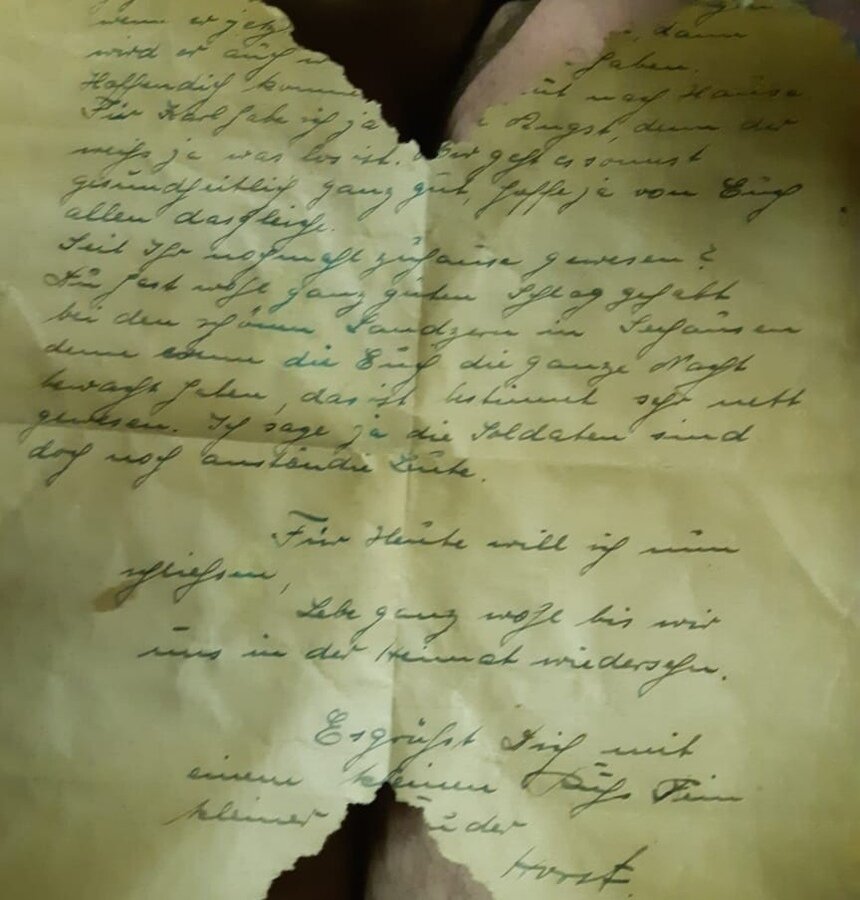 wenn er jetz
, dann
wird er auch w haben.
Hoffendich komm ut nach Hause
Für Karl habe ich ja Angst, denn der
weiß ja was los ist. Mir geht es sonnst
gesundheitlich ganz gut, hoffe ja von Euch
allen dasgleiche.
Seit Ihr nochmahl zuhause gewesen?
Du hast wohl ganz guten Schlag gehabt
bei den schönen Landzern in Seehausen
denn wenn die Euch die ganze Nacht
bewacht haben, das ist bestimmt sehr nett
gewesen. Ich sage ja die Soldaten sind
doch noch anständie Leute.
Für Heute will ich nun
schließen,
Lebe ganz wohl bis wir
uns in der Heimat wiedersehn.
Es grüßt Dich mit
einem kleinen Kuß Dein
kleiner uder
Horst.